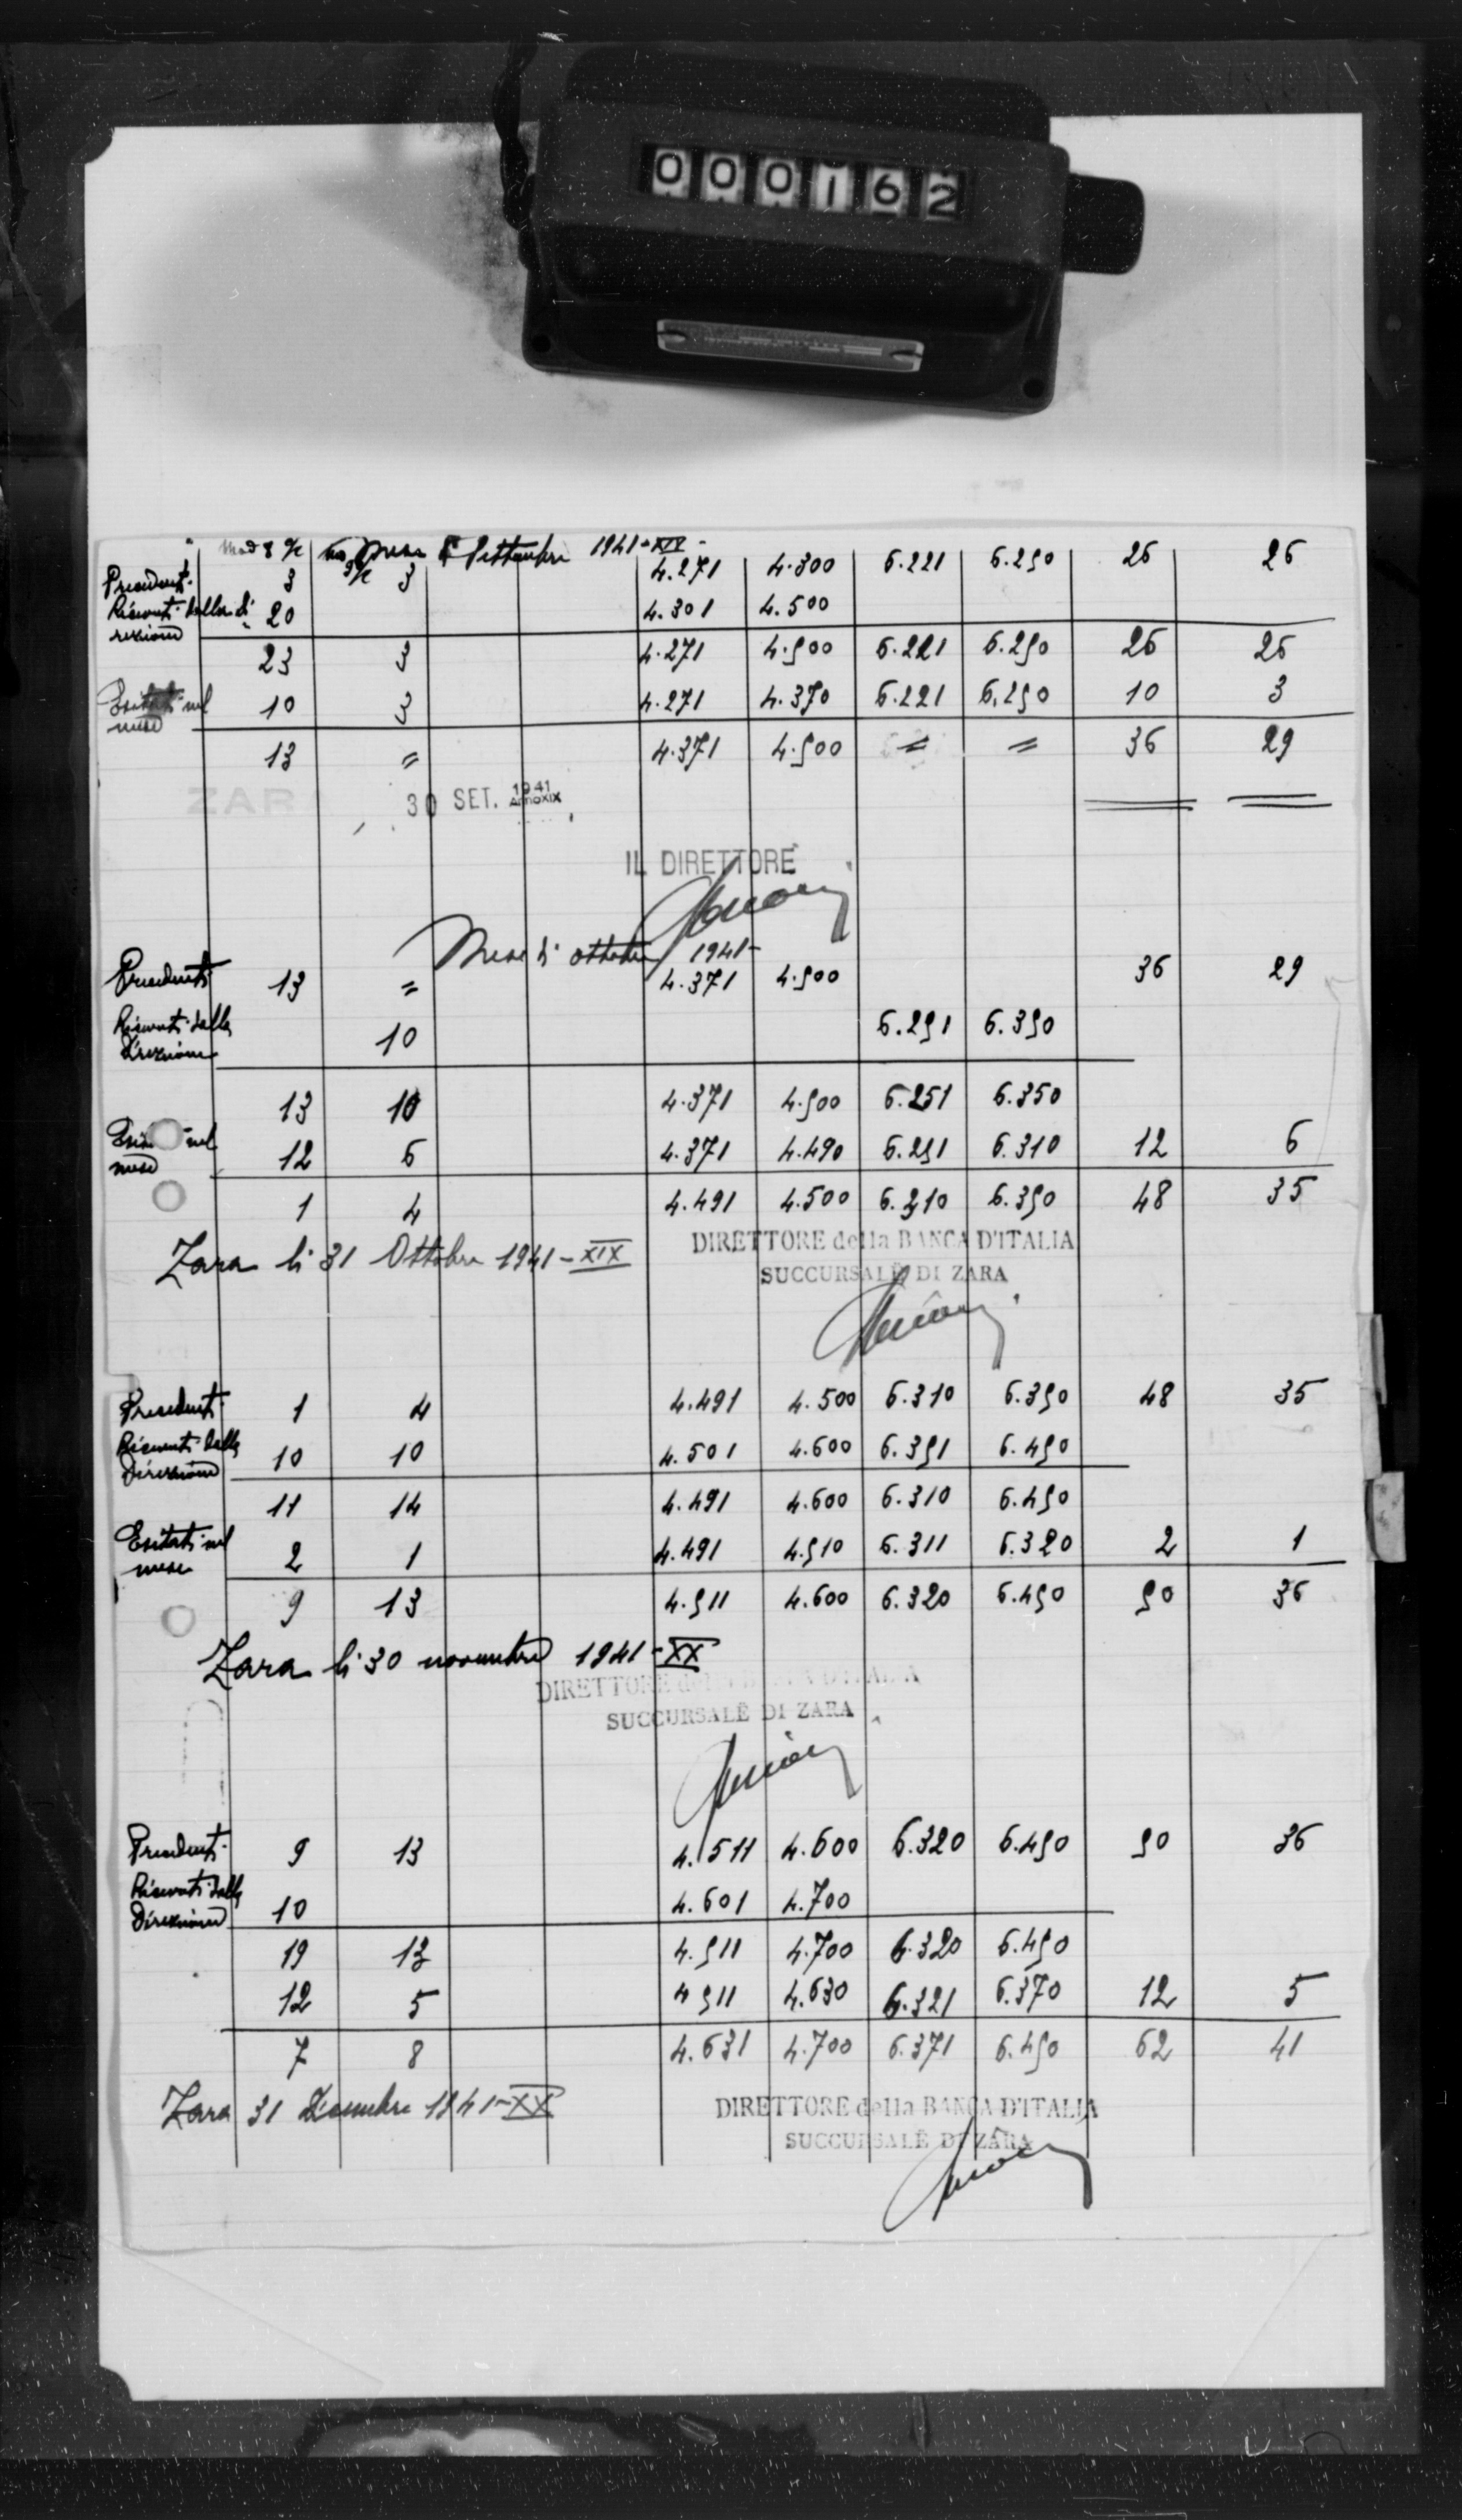 000162
Mod 8 % mese Settembre 1941-XIX-
Precedenti 3 3 4.271 4.300 6.221 6.250 26 26
Ricevuti dalla di- 20 4.301 4.500
rezione
23 3 4.271 4.500 6.221 6.250 26 26
Esitati nel 10 3 4.271 4.370 6.221 6.250 10 3
mese
13 = 4.371 4.500 = = 36 29
ZARA 30 SET. 1941 Anno XIX
IL DIRETTORE
Mese di ottobre 1941-
Precedenti 13 = 4.371 4.500 36 29
Ricevuti dalla 10 6.251 6.350
Direzione
13 10 4.371 4.500 6.251 6.350
Esitati nel 12 6 4.371 4.490 6.251 6.310 12 6
mese
1 4 4.491 4.500 6.310 6.350 48 35
Zara li 31 Ottobre 1941-XIX
DIRETTORE della BANCA D'ITALIA
SUCCURSALE DI ZARA
Precedenti 1 4 4.491 4.500 6.310 6.350 48 35
Ricevuti dalla 10 10 4.501 4.600 6.351 6.450
Direzione
11 14 4.491 4.600 6.310 6.450
Esitati nel 2 1 4.491 4.510 6.311 6.320 2 1
mese
9 13 4.511 4.600 6.320 6.450 50 36
Zara li 30 novembre 1941-XX
DIRETTORE della BANCA D'ITALIA
SUCCURSALE DI ZARA
Precedenti 9 13 4.511 4.600 6.320 6.450 50 36
Ricevuti dalla 10 4.601 4.700
Direzione
19 13 4.511 4.700 6.320 6.450
12 5 4511 4.630 6.321 6.370 12 5
7 8 4.631 4.700 6.371 6.450 62 41
Zara 31 Dicembre 1941-XX
DIRETTORE della BANCA D'ITALIA
SUCCURSALE DI ZARA